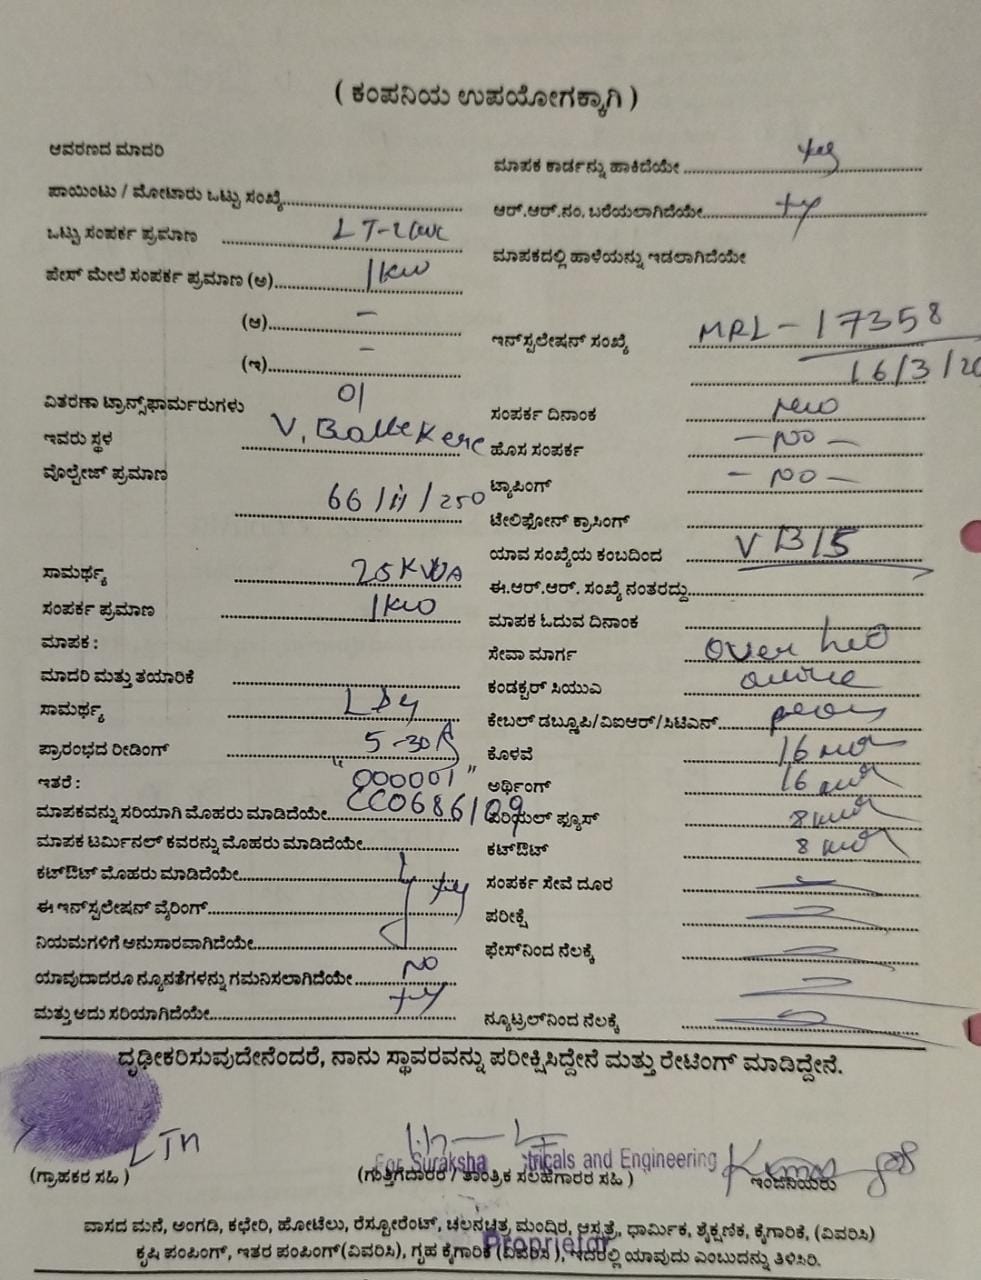 ( ಕಂಪನಿಯ ಉಪಯೋಗಕ್ಕಾಗಿ )
ಆವರಣದ ಮಾದರಿ
ಪಾಯಿಂಟು / ಮೋಟಾರು ಒಟ್ಟು ಸಂಖ್ಯೆ
ಒಟ್ಟು ಸಂಪರ್ಕ ಪ್ರಮಾಣ
ಪೇಸ್ ಮೇಲೆ ಸಂಪರ್ಕ ಪ್ರಮಾಣ (ಅ) 1kw
(ಆ) –
(ಇ) –
ವಿತರಣಾ ಟ್ರಾನ್ಸ್‌ಫಾರ್ಮರುಗಳು 01
ಇವರು ಸ್ಥಳ V. Ballekere
ವೊಲ್ಟೇಜ್ ಪ್ರಮಾಣ
66/11/250
ಸಾಮರ್ಥ್ಯ 25KVA
ಸಂಪರ್ಕ ಪ್ರಮಾಣ 1kw
ಮಾಪಕ :
ಮಾದರಿ ಮತ್ತು ತಯಾರಿಕೆ
ಸಾಮರ್ಥ್ಯ
ಪ್ರಾರಂಭದ ರೀಡಿಂಗ್ 5-30A
ಇತರೆ : "000001"
ಮಾಪಕವನ್ನು ಸರಿಯಾಗಿ ಮೊಹರು ಮಾಡಿದೆಯೇ
ಮಾಪಕ ಟರ್ಮಿನಲ್ ಕವರನ್ನು ಮೊಹರು ಮಾಡಿದೆಯೇ
ಕಟ್‌ಔಟ್ ಮೊಹರು ಮಾಡಿದೆಯೇ
ಈ ಇನ್‌ಸ್ಪಲೇಷನ್ ವೈರಿಂಗ್
ನಿಯಮಗಳಿಗೆ ಅನುಸಾರವಾಗಿದೆಯೇ
ಯಾವುದಾದರೂ ನ್ಯೂನತೆಗಳನ್ನು ಗಮನಿಸಲಾಗಿದೆಯೇ NO
ಮತ್ತು ಅದು ಸರಿಯಾಗಿದೆಯೇ
ಮಾಪಕ ಕಾರ್ಡನ್ನು ಹಾಕಿದೆಯೇ
ಆರ್.ಆರ್.ನಂ. ಬರೆಯಲಾಗಿದೆಯೇ
ಮಾಪಕದಲ್ಲಿ ಹಾಳೆಯನ್ನು ಇಡಲಾಗಿದೆಯೇ
ಇನ್‌ಸ್ಪಲೇಷನ್ ಸಂಖ್ಯೆ MRL-17358
16/3/20
ಸಂಪರ್ಕ ದಿನಾಂಕ
ಹೊಸ ಸಂಪರ್ಕ – NO –
ಟ್ಯಾಪಿಂಗ್ – NO –
ಟೇಲಿಫೋನ್ ಕ್ರಾಸಿಂಗ್
ಯಾವ ಸಂಖ್ಯೆಯ ಕಂಬದಿಂದ VB/5
ಈ.ಆರ್.ಆರ್. ಸಂಖ್ಯೆ ನಂತರದ್ದು
ಮಾಪಕ ಓದುವ ದಿನಾಂಕ
ಸೇವಾ ಮಾರ್ಗ over
ಕಂಡಕ್ಟರ್ ಸಿಯುಎ
ಕೇಬಲ್ ಡಬ್ಲೂಪಿ/ವಿಐಆರ್/ಸಿಟಿಎನ್
ಕೊಳವೆ 16
ಅರ್ಥಿಂಗ್ 16
ಏರಿಯಲ್ ಫ್ಯೂಸ್ 8
ಕಟ್‌ಔಟ್ 8
ಸಂಪರ್ಕ ಸೇವೆ ದೂರ
ಪರೀಕ್ಷೆ
ಫೇಸ್‌ನಿಂದ ನೆಲಕ್ಕೆ
ನ್ಯೂಟ್ರಲ್‌ನಿಂದ ನೆಲಕ್ಕೆ
ದೃಢೀಕರಿಸುವುದೇನೆಂದರೆ, ನಾನು ಸ್ಥಾವರವನ್ನು ಪರೀಕ್ಷಿಸಿದ್ದೇನೆ ಮತ್ತು ರೇಟಿಂಗ್ ಮಾಡಿದ್ದೇನೆ.
For Suraksha and Engineering
(ಗ್ರಾಹಕರ ಸಹಿ ) (ಗುತ್ತಿಗೆದಾರರ / ತಾಂತ್ರಿಕ ಸಲಹೆಗಾರರ ಸಹಿ ) ಇಂಜಿನಿಯರು
ವಾಸದ ಮನೆ, ಅಂಗಡಿ, ಕಛೇರಿ, ಹೋಟೆಲು, ರೆಸ್ಟೋರೆಂಟ್, ಚಲನಚಿತ್ರ ಮಂದಿರ, ಆಸ್ಪತ್ರೆ, ಧಾರ್ಮಿಕ, ಶೈಕ್ಷಣಿಕ, ಕೈಗಾರಿಕೆ, (ವಿವರಿಸಿ)
ಕೃಷಿ ಪಂಪಿಂಗ್, ಇತರ ಪಂಪಿಂಗ್(ವಿವರಿಸಿ), ಗೃಹ ಕೈಗಾರಿಕೆ (ವಿವರಿಸಿ ), ಇದರಲ್ಲಿ ಯಾವುದು ಎಂಬುದನ್ನು ತಿಳಿಸಿರಿ.
Proprietor